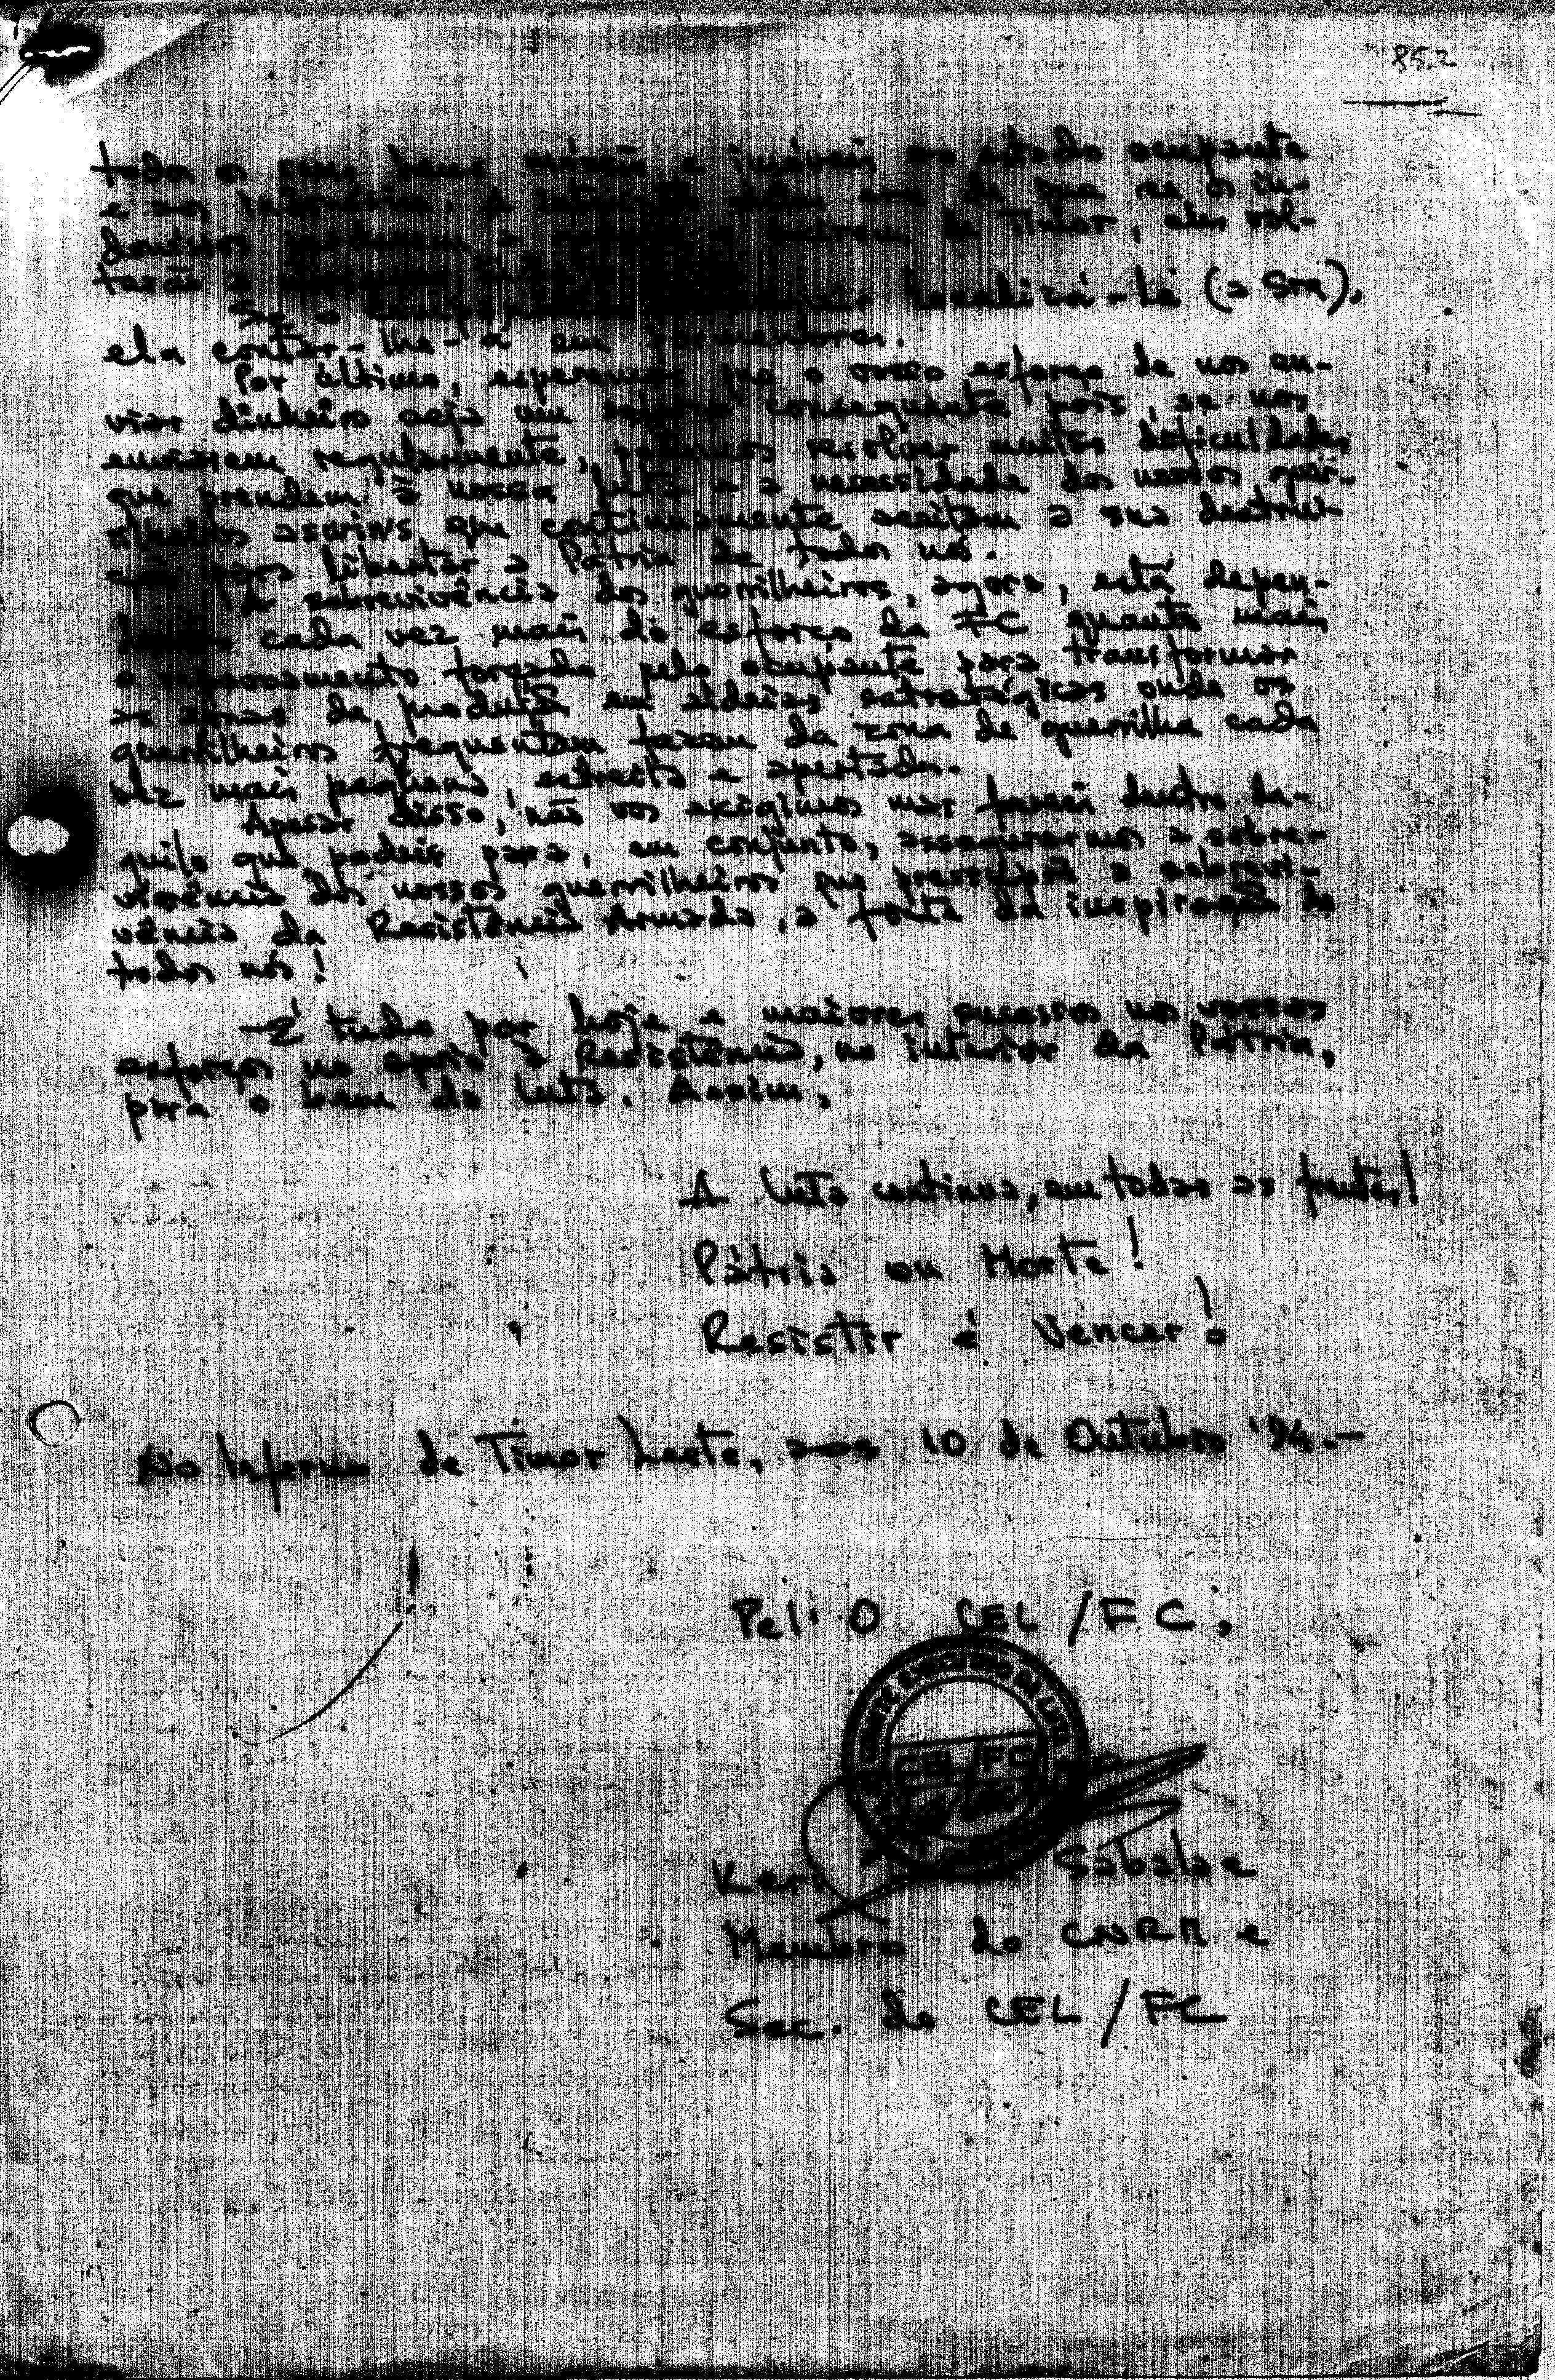 85.2
todos os seus bens móveis e imóveis ao estado ocupante
e aos de que se os in-
donésios a de Timor, eles vol-
tarão
Se o localizá-la (a Sra),
ela contar-lhe-á em pormenores.
Por último, esperamos que o vosso esforço de nos en-
viar dinheiro seja um consequente pois, se nos
enviarem regularmente, podemos resolver muitas dificuldades
que prendem à nossa luta e a necessidade dos nossos guer-
rilheiros que continuamente aceitam a sua destrui-
ção para libertar a Pátria de todos nós.
A sobrevivência dos guerrilheiros, agora, está depen-
dendo cada vez mais do esforço da FC quanto mais
o forçado pelo ocupante para transformar
as zonas de produção em aldeias estratégicas onde os
guerrilheiros frequentam fazem da zona de guerrilha cada
vez mais pequena, estreita e apertada.
Apesar disso, não vos exigimos mas fazei dentro da-
quilo que podeis para, em conjunto, assegurarmos a sobre-
vivência dos nossos guerrilheiros que pressupõe a sobrevi-
vência da Resistência Armada, a fonte da inspiração de
todos nós!
É tudo por hoje e maiores sucessos nos vossos
esforços no apoio à Resistência, no interior da Pátria,
para o bem da luta. Assim,
A luta continua, em todas as frentes!
Pátria ou Morte!
Resistir é Vencer!
No Inferno de Timor Leste, aos 10 de Outubro '94.-
Pel'O CEL/FC,
COMITÉ EXECUTIVO DA LUTA
CEL/FC
Keri Sabalae
Membro do CNRM e
Sec. do CEL/FC